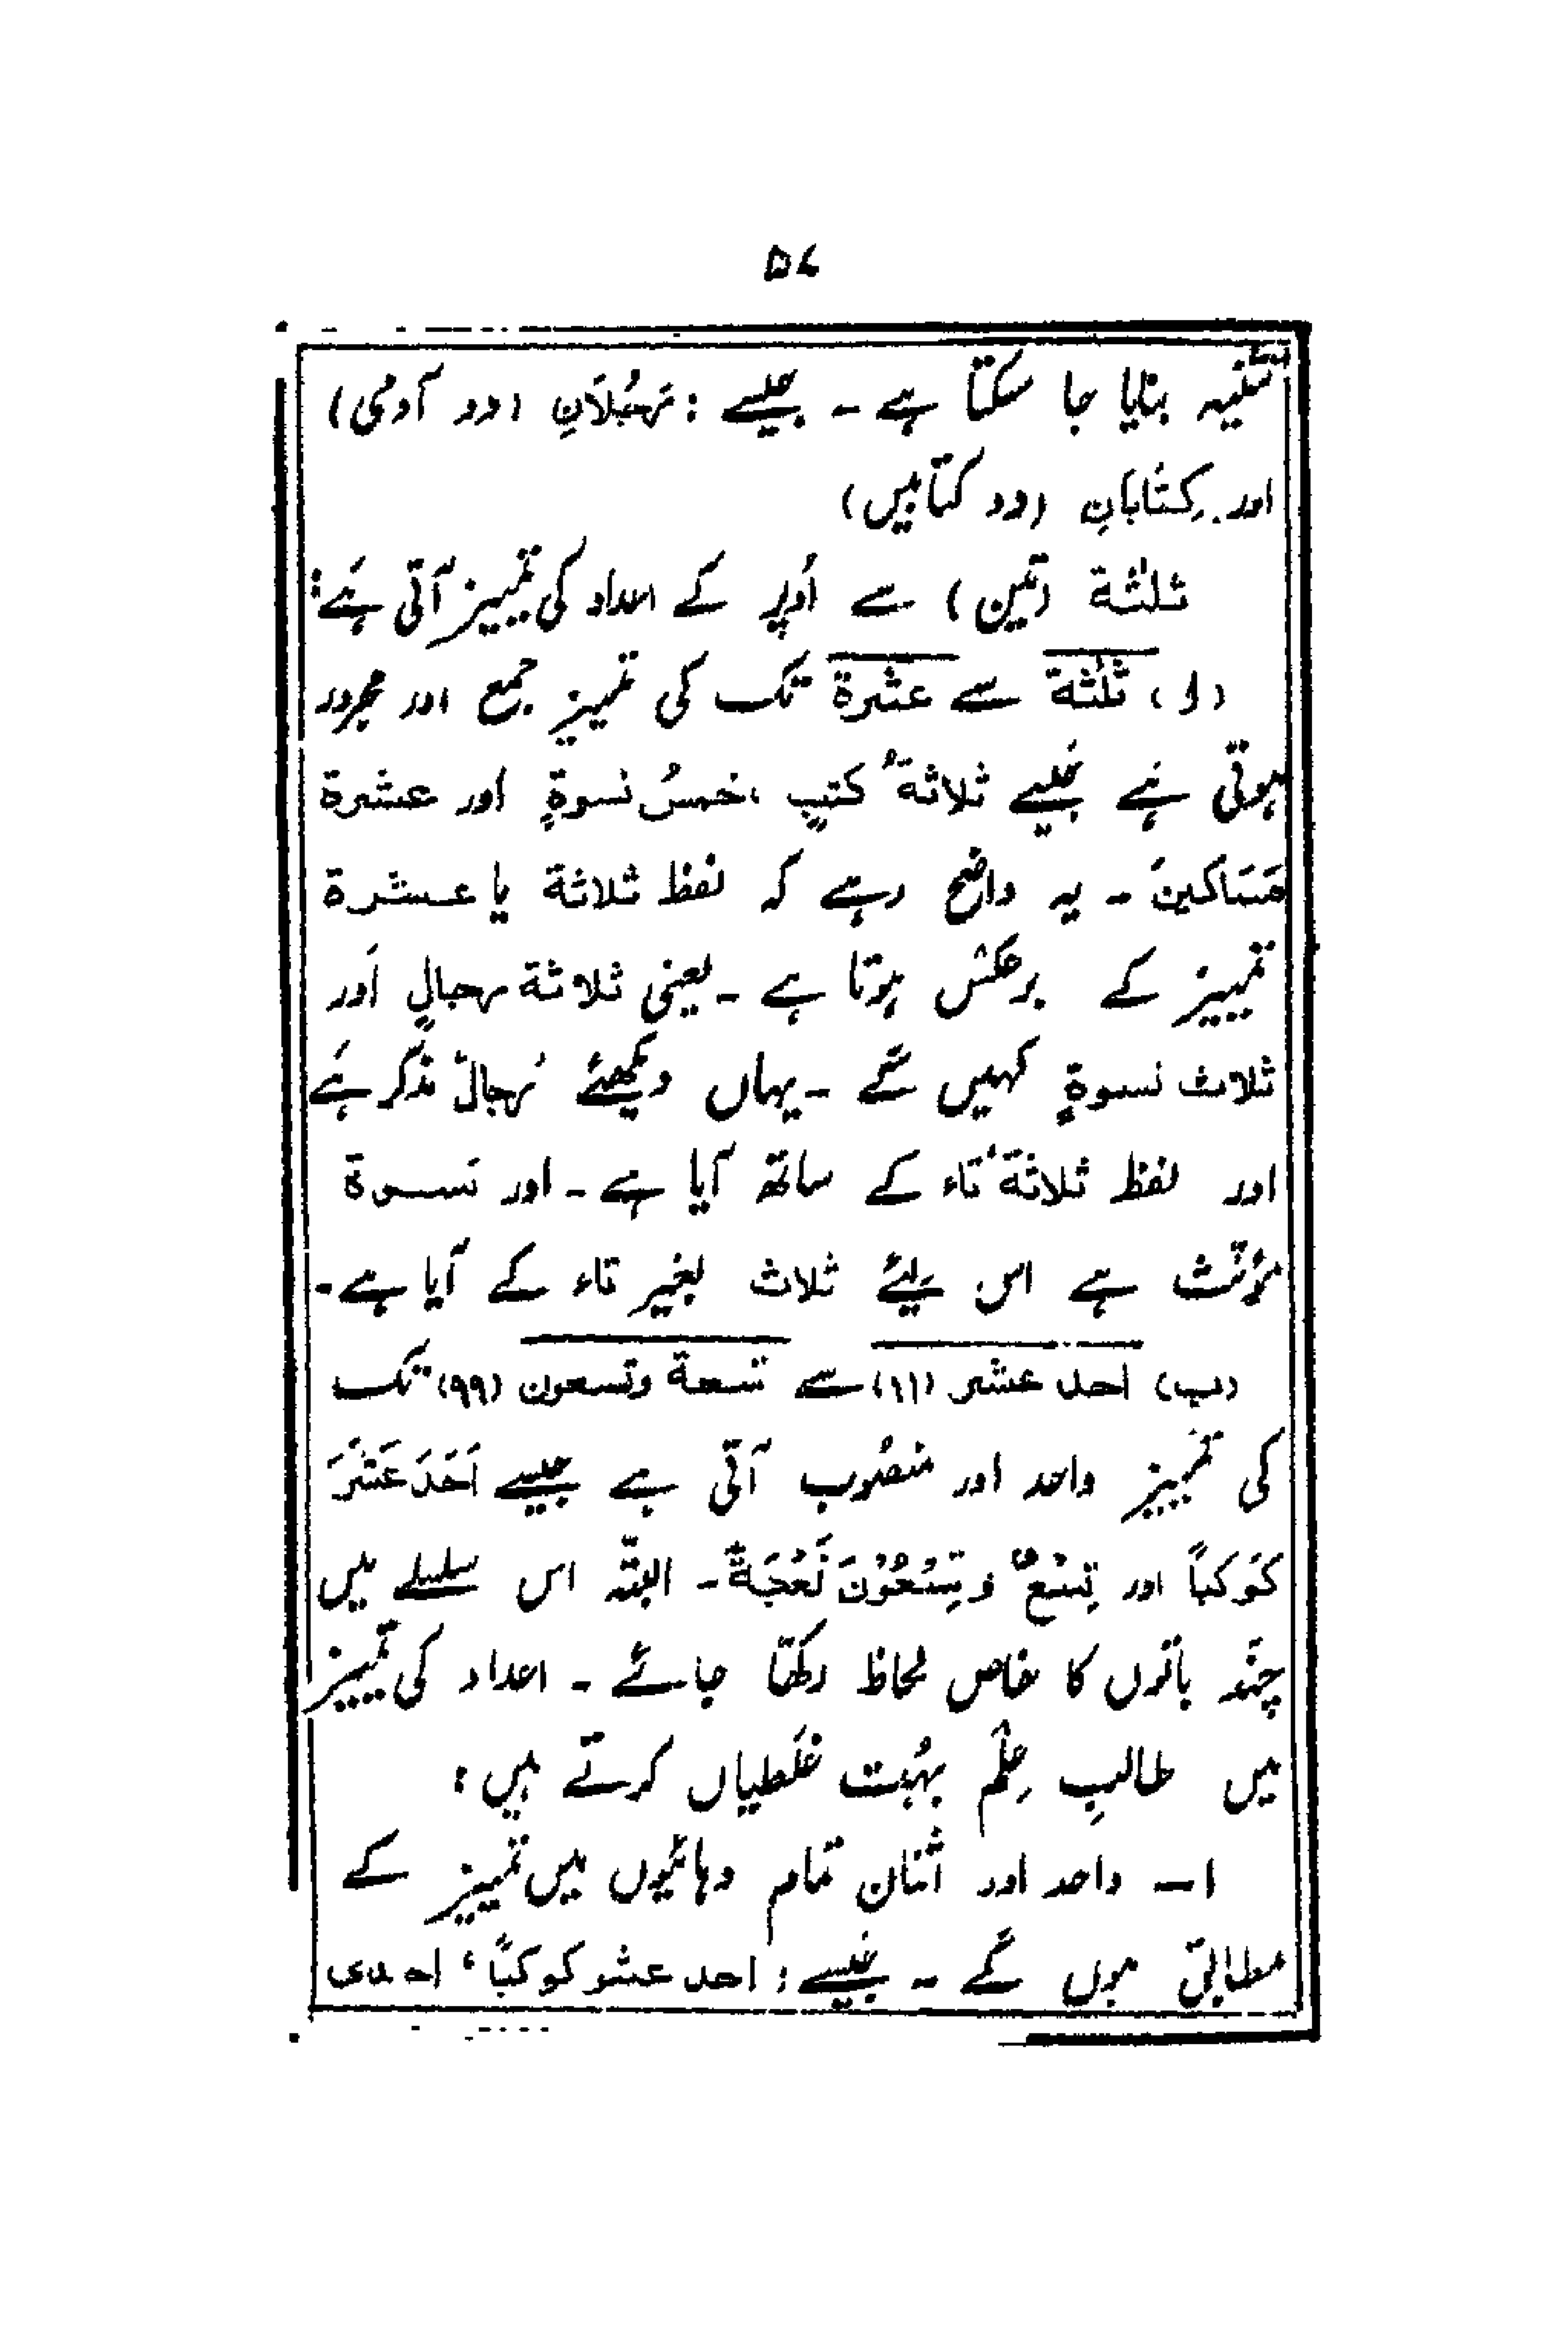 ۵۷
تثنیہ بنایا جا سکتا ہے ۔ جیسے : رَجُلَانِ (دو آدمی)
اور کِتَابَانِ (دو کتابیں)
ثلٰثة (تین) سے اُوپر کے اعداد کی تمییز آتی ہَے :
(ا) ثلٰثة سے عشرة تک کی تمییز جمع اور مجرور
ہوتی ہَے جَیسے ثلاثةُ کتبٍ ، خمسُ نسوةٍ اور عشرة
مَسَاکینَ ۔ یہ واضح رہے کہ لفظ ثلاثة یا عشرة
تمییز کے برعکس ہوتا ہے ۔ یعنی ثلاثة رجالٍ اَور
ثلاث نسوةٍ کہیں گے ۔ یہاں دیکھئے رجالٌ مذکّر ہَے
اور لفظ ثلاثةُ تاء کے ساتھ آیا ہے ۔ اور نسوة
مؤنّث ہے اس لِیئے ثلاث بغیر تاء کے آیا ہے ۔
(ب) احد عشر (۱۱) سے تسعة وتسعون (۹۹) تک
کی تمییز واحد اور منصُوب آتی ہے جیسے اَحَدَ عَشَرَ
کَوکَبًا اور تِسْعٌ وَتِسْعُوْنَ نَعْجَةً ۔ البتّہ اس سلسلے میں
چند باتوں کا خاص لحاظ رکھّا جائے ۔ اعداد کی تمییز
میں طالبِ عِلْم بہُت غلَطیاں کرتے ہیں :
۱ــ واحد اور اثنان تمام دہائیُوں میں تمییز کے
مطابق ہوں گے ۔ جَیسے : احد عشر کوکبًا ، احدی